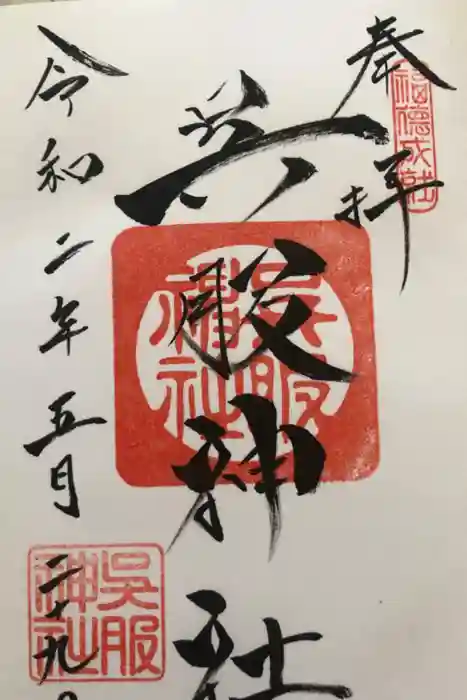 奉拝
福徳成就
呉服神社
吳服
神社
令和二年五月二十九日
吳服
神社